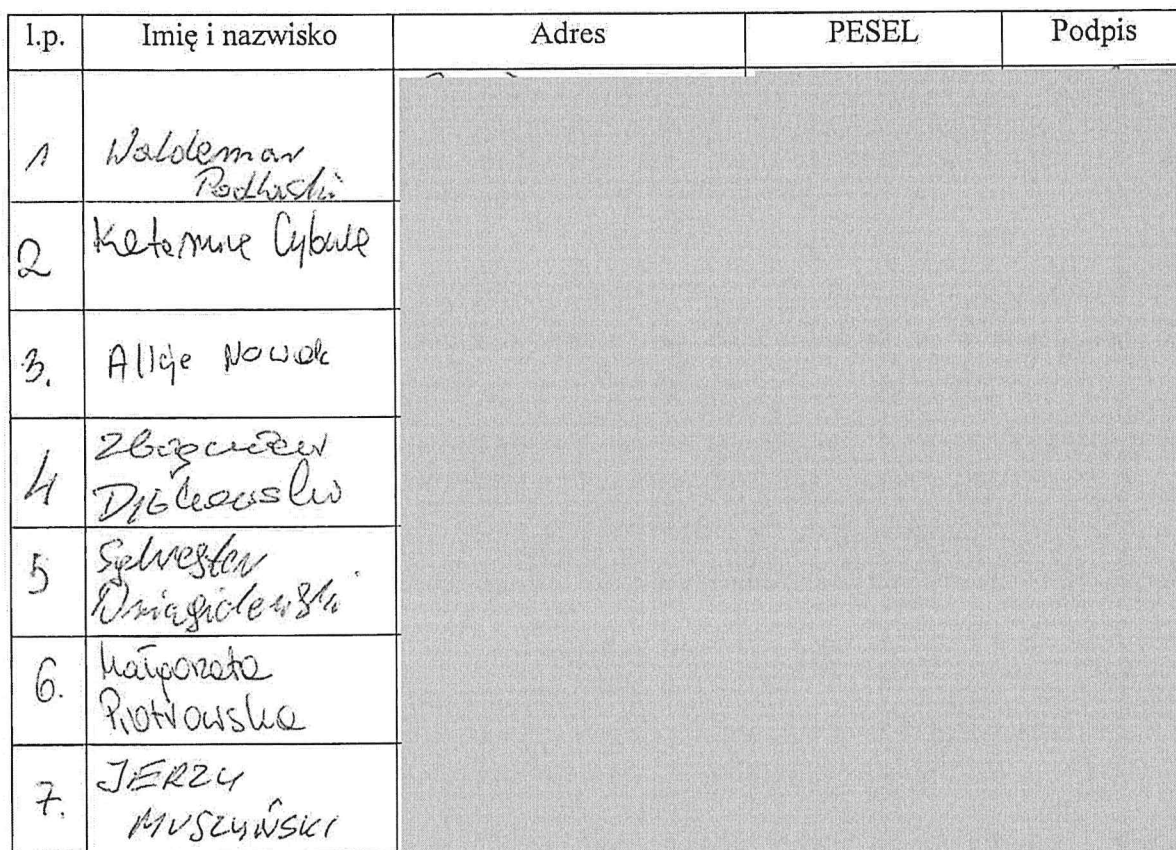 l.p. Imię i nazwisko Adres PESEL Podpis
1 Waldemar
Podlaski
2 Katarzyna Cybula
3. Alicja Nowak
4 Zbigniew
5 Sylwester
6. Małgorzata
Piotrowska
7. JERZY
MUSZYŃSKI